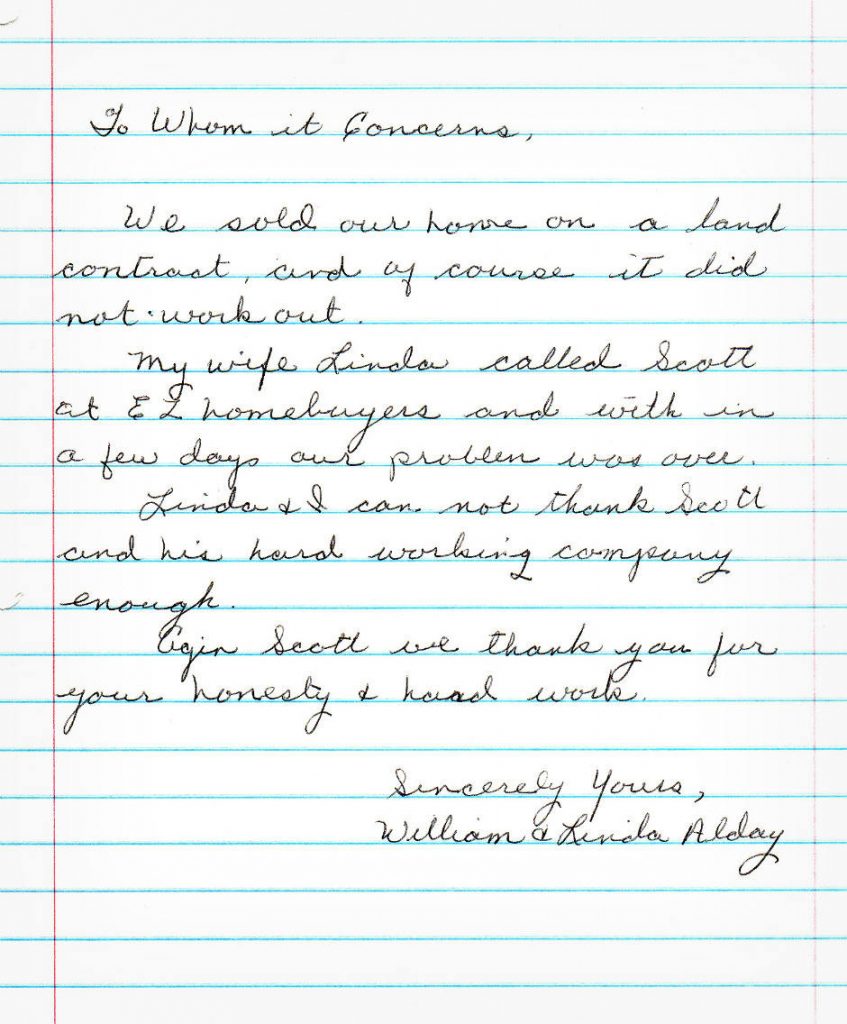 To Whom it Concerns,
We sold our home on a land
contract, and of course it did
not work out.
My wife Linda called Scott
at E Z homebuyers and with in
a few days our problem was over.
Linda & I can not thank Scott
and his hard working company
enough.
Egin Scott we thank you for
your honesty & haard work.
Sincerely Yours,
William & Linda Alday